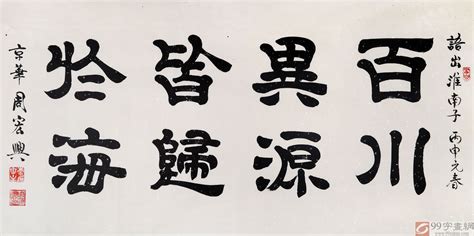 語出淮南子 丙申元春
百川
異源
皆歸
於海
京華 周宏興
99字畫網